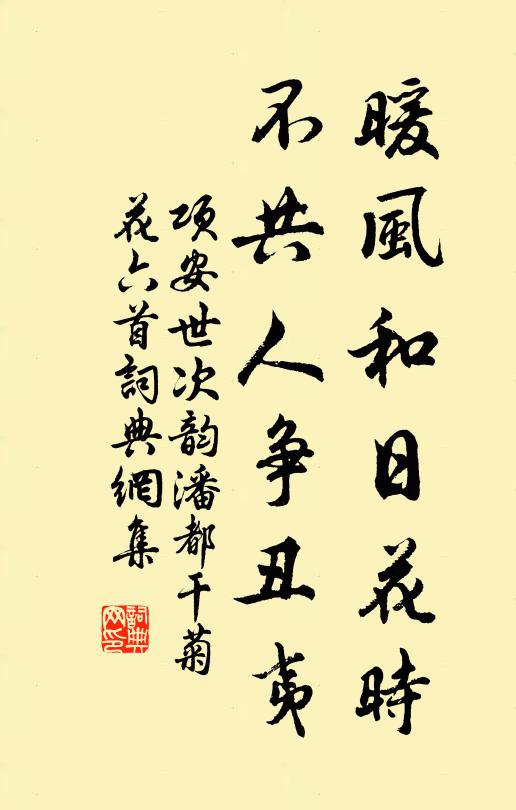 暖風和日花時
不共人争丑夷
項安世次韵潘都干菊
花六首詞典網集
詞典网印